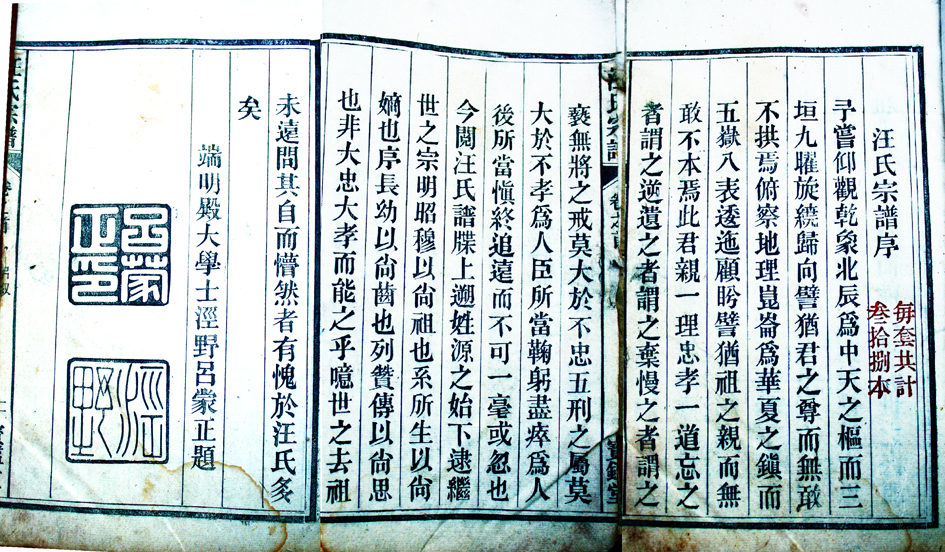 毎套共計
叁拾捌本
汪氏宗譜序
予嘗仰觀乾象北辰爲中天之樞而三
垣九曜旋繞歸向譬猶君之尊而無敢
不拱焉俯察地理崑崙爲華夏之鎮而
五嶽八表逶迤顧盻譬猶祖之親而無
敢不本焉此君親一理忠孝一道忘之
者謂之逆遺之者謂之棄慢之者謂之
汪氏宗譜
褻無將之戒莫大於不忠五刑之屬莫
大於不孝爲人臣所當鞠躬盡瘁爲人
後所當愼終追遠而不可一毫或忽也
今閱汪氏譜牒上遡姓源之始下逮繼
世之宗明昭穆以尙祖也系所生以尙
嫡也序長幼以尙齒也列贊傳以尙思
也非大忠大孝而能之乎噫世之去祖
未遠問其自而懵然者有愧於汪氏多
矣
端明殿大學士涇野呂蒙正題
呂蒙正印
涇野
汪氏宗譜